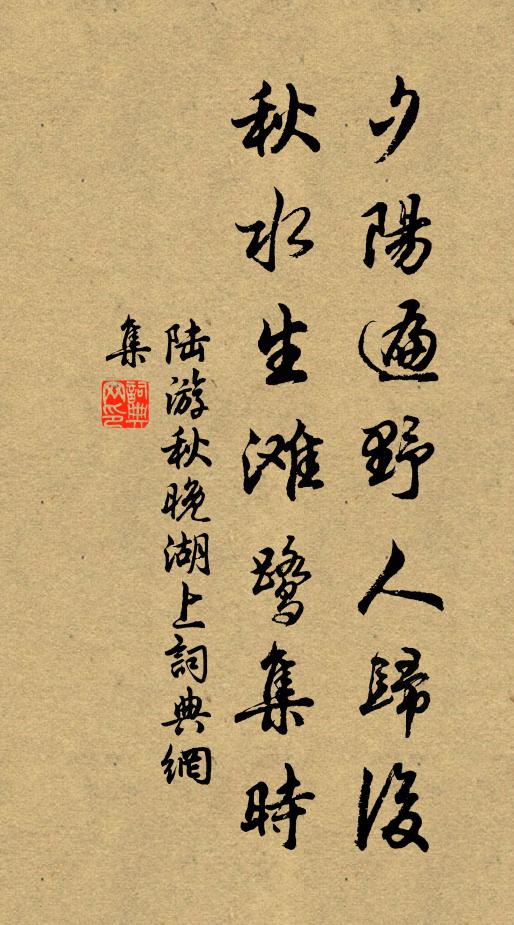 夕陽遍野人歸後
秋水生滩鷺集時
陆游秋晚湖上詞典網
集
詞典
网印